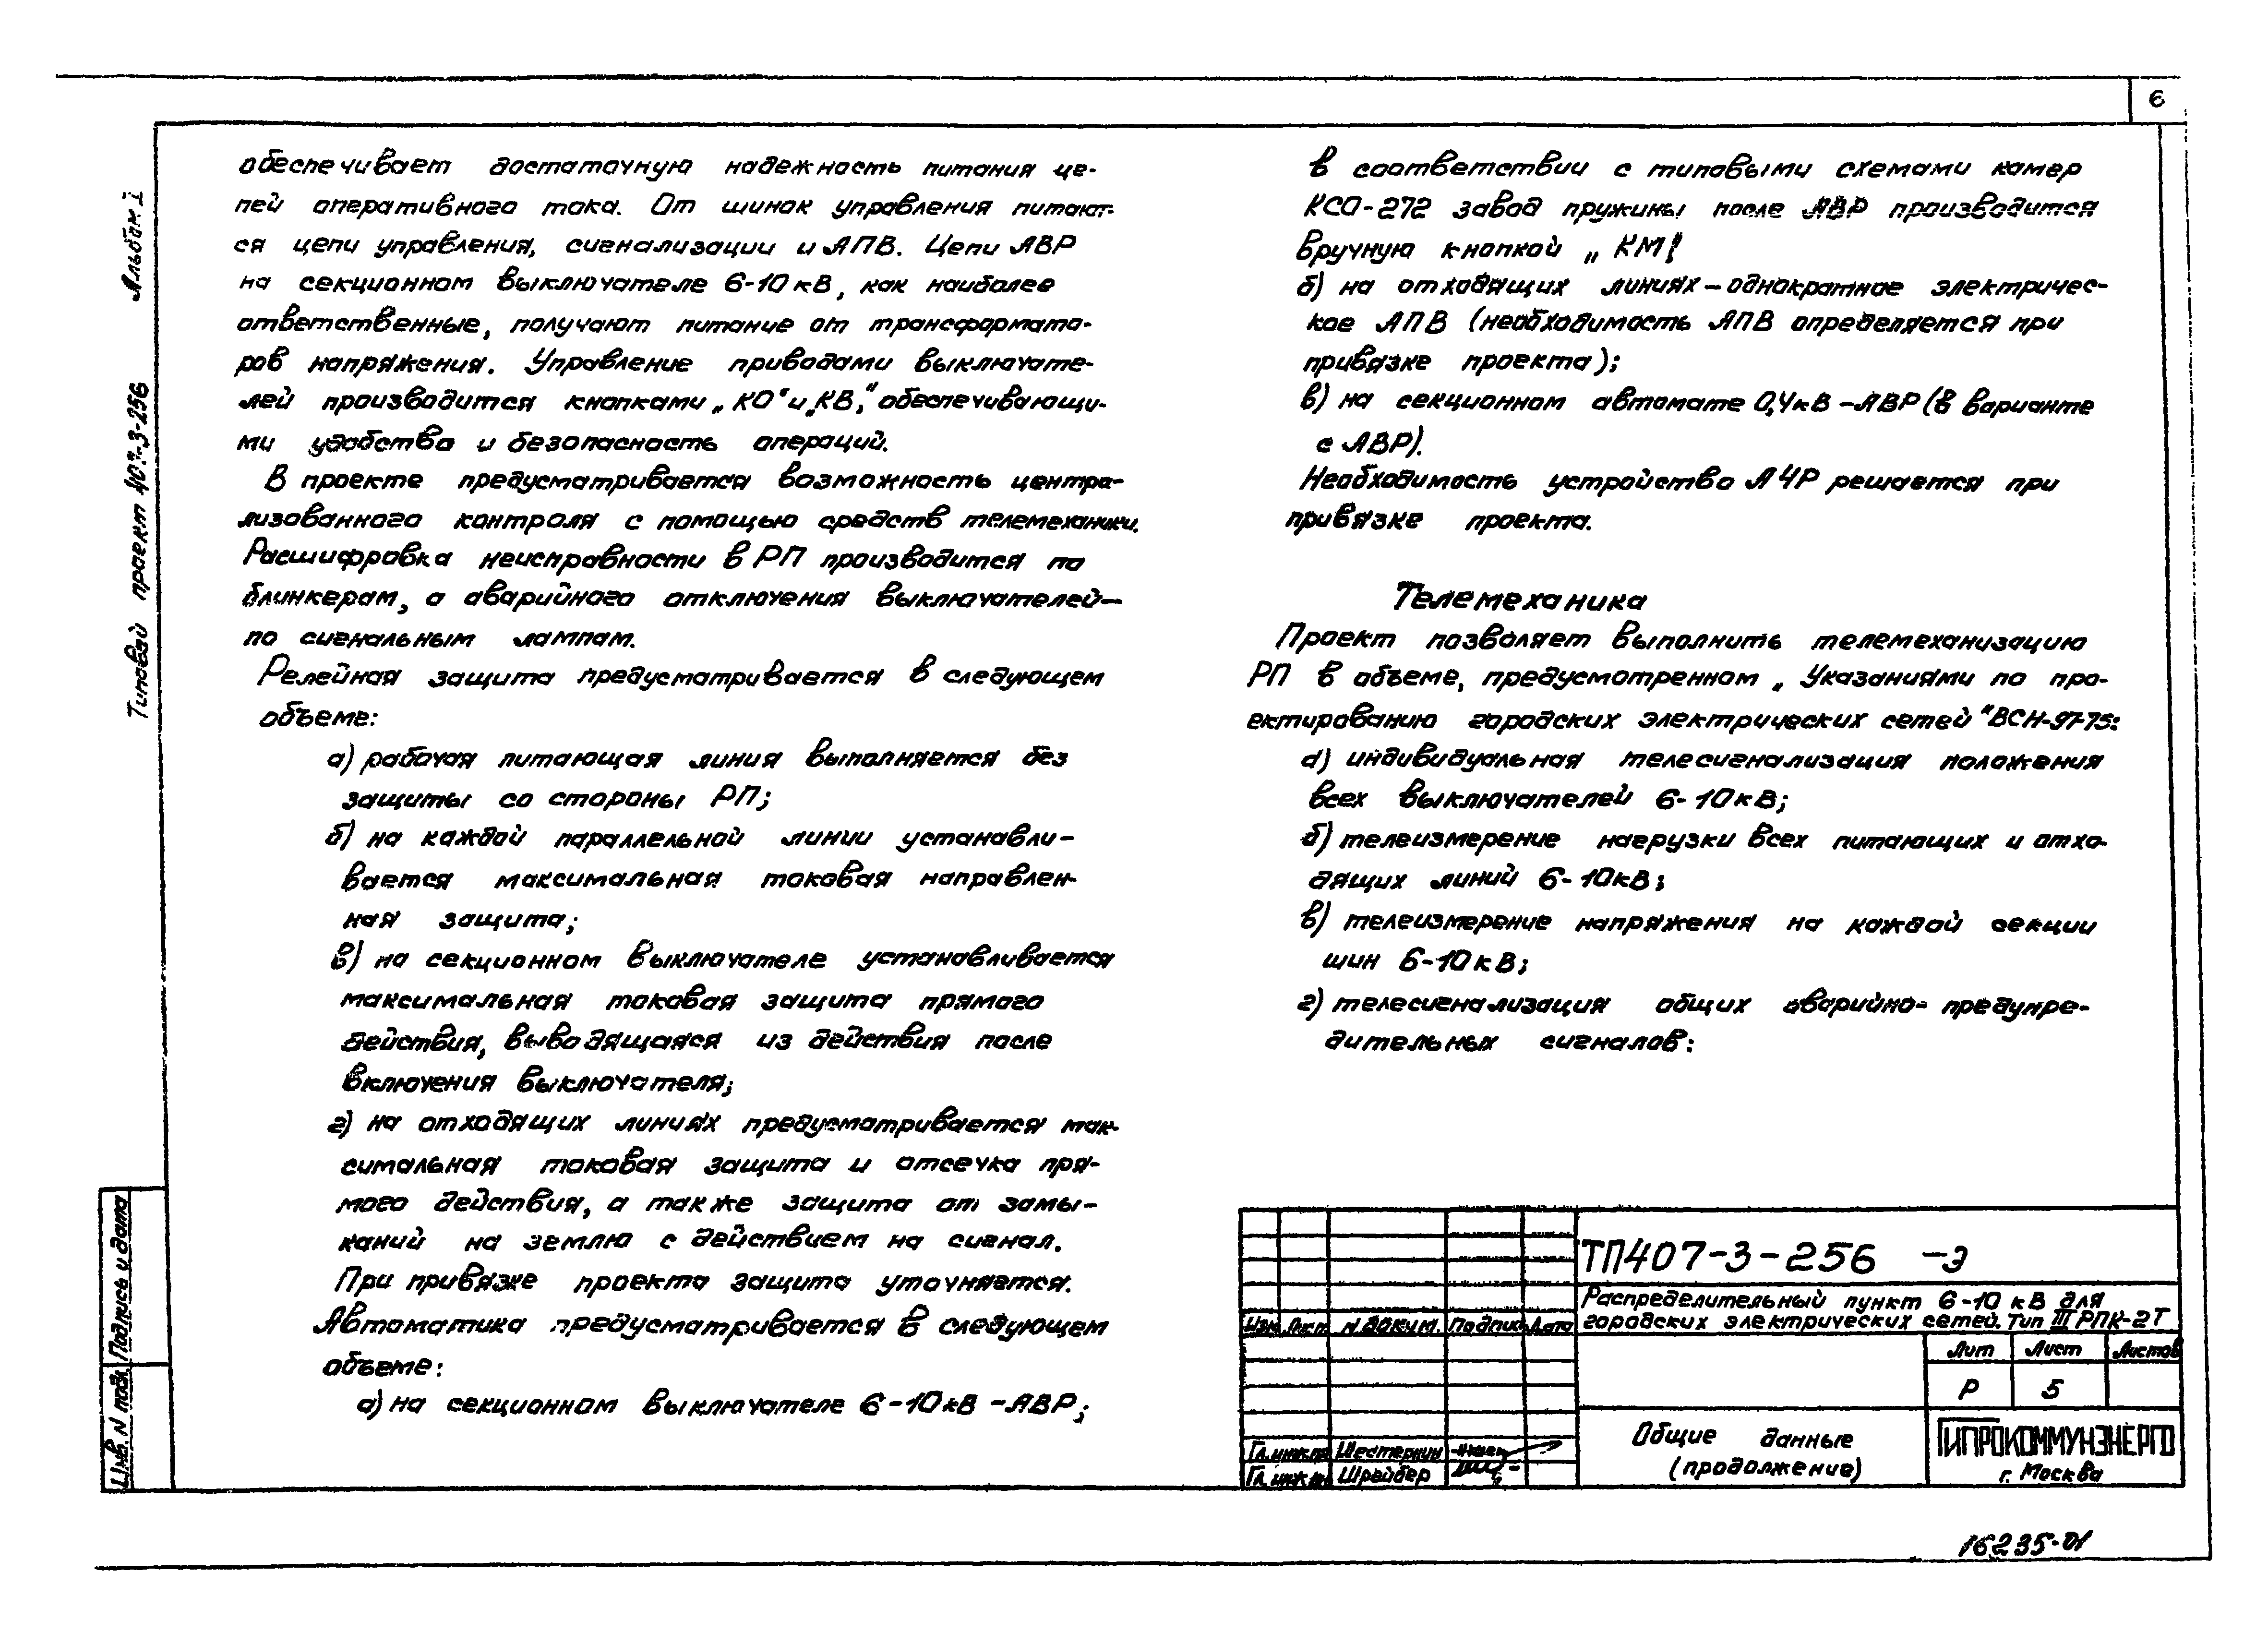 6
Альбом I
Типовой проект 407-3-256
обеспечивает достаточную надежность питания це-
пей оперативного тока. От шинок управления питают-
ся цепи управления, сигнализации и АПВ. Цепи АВР
на секционном выключателе 6-10кВ, как наиболее
ответственные, получают питание от трансформато-
ров напряжения. Управление приводами выключате-
лей производится кнопками „КО“ и „КВ“, обеспечивающи-
ми удобство и безопасность операций.
В проекте предусматривается возможность центра-
лизованного контроля с помощью средств телемеханики.
Расшифровка неисправности в РП производится по
блинкерам, а аварийного отключения выключателей—
по сигнальным лампам.
Релейная защита предусматривается в следующем
объеме:
а) рабочая питающая линия выполняется без
защиты со стороны РП;
б) на каждой параллельной линии устанавли-
вается максимальная токовая направлен-
ная защита;
в) на секционном выключателе устанавливается
максимальная токовая защита прямого
действия, выводящаяся из действия после
включения выключателя;
г) на отходящих линиях предусматривается мак-
симальная токовая защита и отсечка пря-
мого действия, а также защита от замы-
каний на землю с действием на сигнал.
При привязке проекта защита уточняется.
Автоматика предусматривается в следующем
объеме:
а) на секционном выключателе 6-10кВ -АВР;
В соответствии с типовыми схемами камер
КСО-272 завод пружины после АВР производится
вручную кнопкой „КМ“.
б) на отходящих линиях – однократное электричес-
кое АПВ (необходимость АПВ определяется при
привязке проекта);
в) на секционном автомате 0,4кВ -АВР (в варианте
с АВР).
Необходимость устройства АЧР решается при
привязке проекта.
Телемеханика
Проект позволяет выполнить телемеханизацию
РП в объеме, предусмотренном „Указаниями по про-
ектированию городских электрических сетей“ ВСН-97-75:
а) индивидуальная телесигнализация положения
всех выключателей 6-10кВ;
б) телеизмерение нагрузки всех питающих и отхо-
дящих линий 6-10кВ;
в) телеизмерение напряжения на каждой секции
шин 6-10кВ;
г) телесигнализация общих аварийно-предупре-
дительных сигналов:
Инв. N подл. Подпись и дата
ТП407-3-256 -Э
Распределительный пункт 6-10 кВ для
городских электрических сетей. Тип III РПК-2Т
Изм. Лист N докум. Подпись Дата
Лит Лист Листов
Р 5
Гл. инж. пр Шестернин
Гл. инж. Шрайбер
Общие данные
(продолжение)
ГИПРОКОММУНЭНЕРГО
г. Москва
16235-01